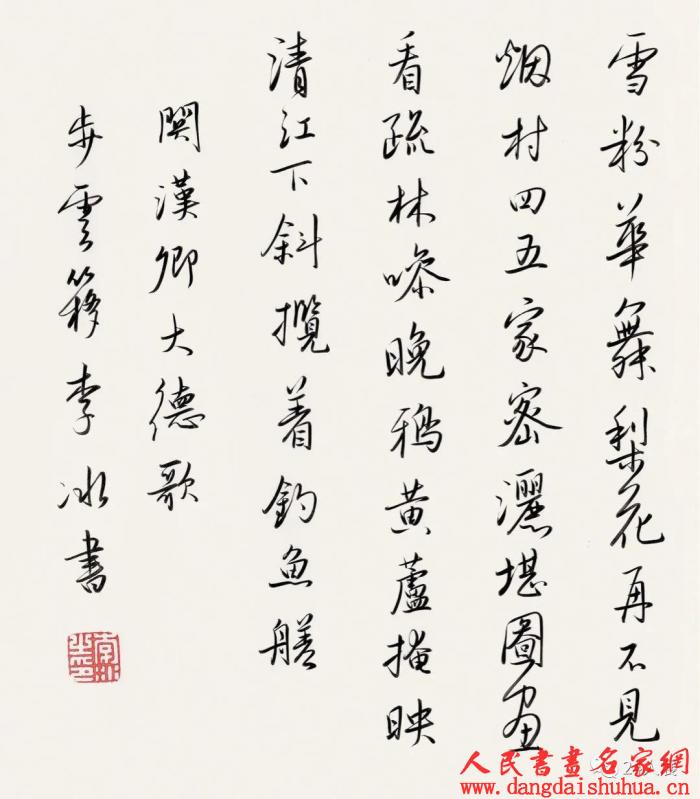 雪粉華舞梨花再不見
烟村四五家密灑堪圖畫
看疏林噪晚鴉黄蘆掩映
清江下斜攬着釣魚艖
関漢卿大德歌
步雲簃李冰書
人民書畫名家網
www.dangdaishuhua.cn